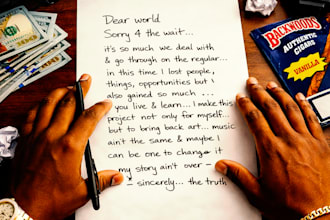 Dear world
Sorry 4 the wait...
it's so much we deal with
& go through on the regular...
in this time I lost people,
things, opportunities but I
also gained so much ...
you live & learn... I make this
project not only for myself...
but to bring back art... music
ain't the same & maybe I
can be one to change it
my story ain't over -
- sincerely... the truth
BACKWOODS
AUTHENTIC
CIGARS
VANILLA